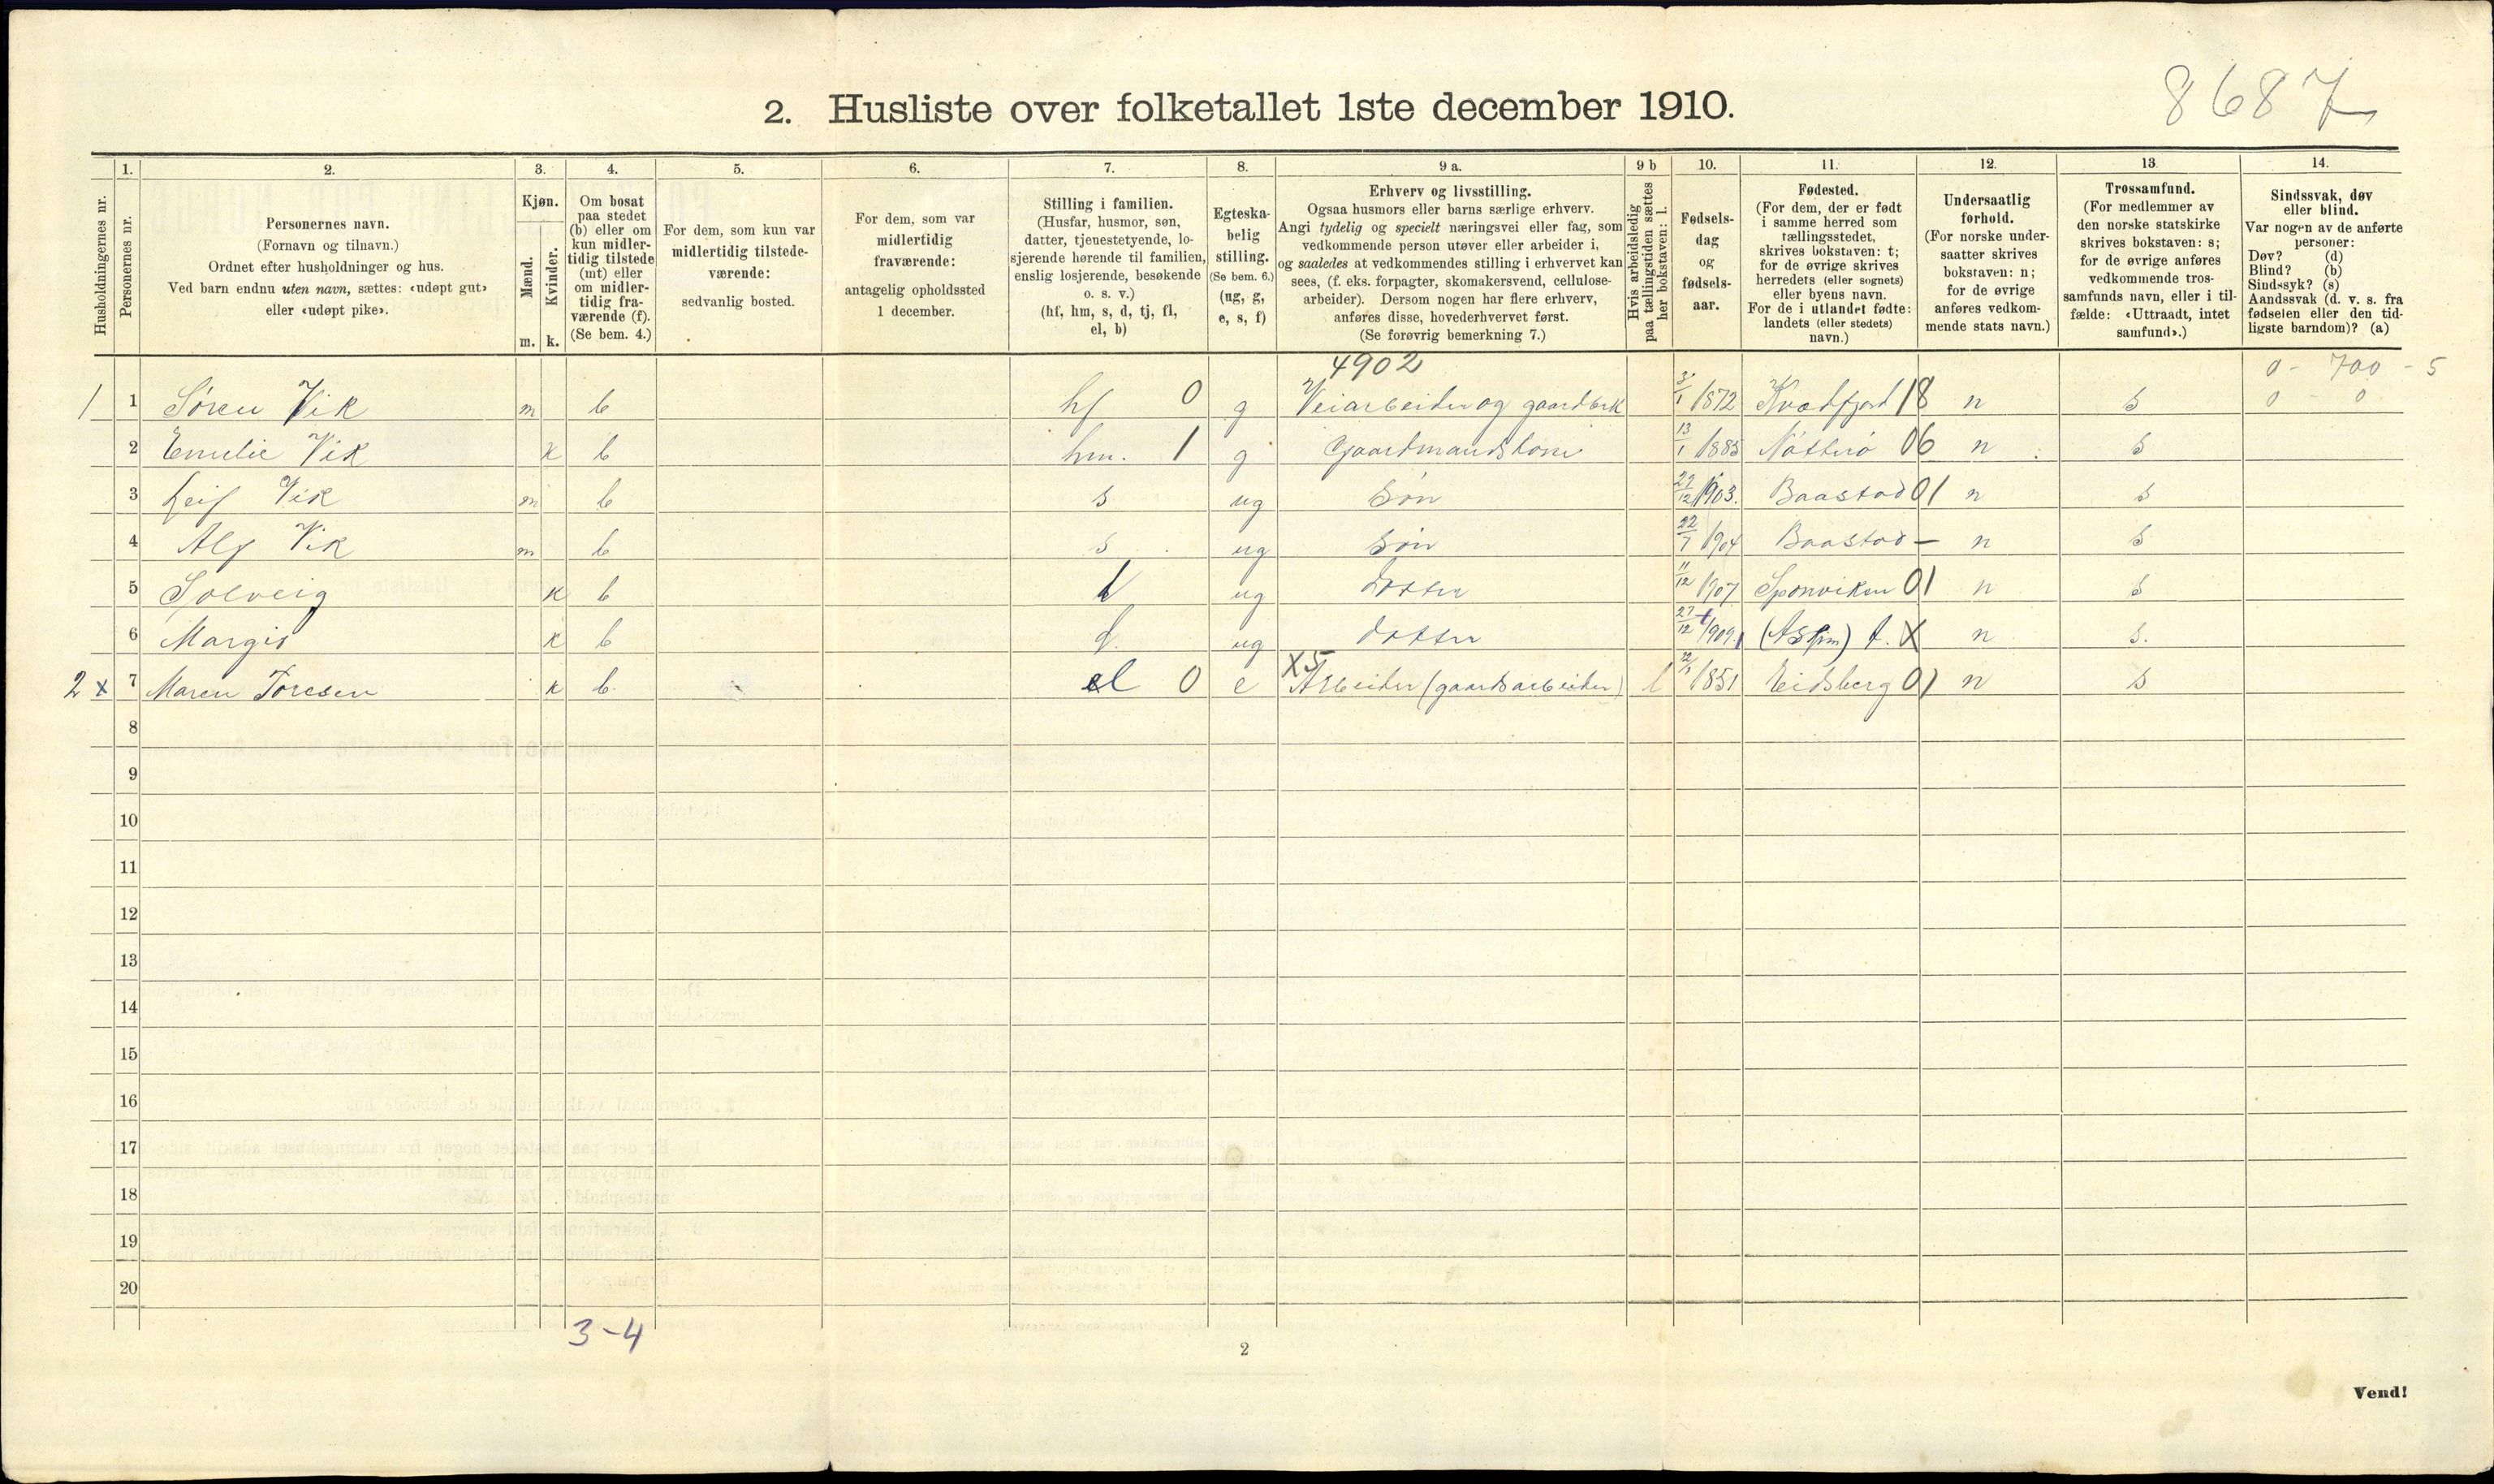 8687
2. Husliste over folketallet 1ste december 1910.
1. 2. 3. 4. 5. 6. 7. 8. 9 a. 9 b 10. 11. 12. 13. 14.
Husholdningernes nr.
Personernes nr.
Personernes navn.
(Fornavn og tilnavn.)
Ordnet efter husholdninger og hus.
Ved barn endnu uten navn, sættes: «udøpt gut»
eller «udøpt pike».
Kjøn.
Mænd.
Kvinder.
m. k.
Om bosat
paa stedet
(b) eller om
kun midler-
tidig tilstede
(mt) eller
om midler-
tidig fra-
værende (f).
(Se bem. 4.)
For dem, som kun var
midlertidig tilstede-
værende:
sedvanlig bosted.
For dem, som var
midlertidig
fraværende:
antagelig opholdssted
1 december.
Stilling i familien.
(Husfar, husmor, søn,
datter, tjenestetyende, lo-
sjerende hørende til familien,
enslig losjerende, besøkende
o. s. v.)
(hf, hm, s, d, tj, fl,
el, b)
Egteska-
belig
stilling.
(Se bem. 6.)
(ug, g,
e, s, f)
Erhverv og livsstilling.
Ogsaa husmors eller barns særlige erhverv.
Angi tydelig og specielt næringsvei eller fag, som
vedkommende person utøver eller arbeider i,
og saaledes at vedkommendes stilling i erhvervet kan
sees, (f. eks. forpagter, skomakersvend, cellulose-
arbeider). Dersom nogen har flere erhverv,
anføres disse, hovederhvervet først.
(Se forøvrig bemerkning 7.)
Hvis arbeidsledig
paa tællingstiden sættes
her bokstaven: l.
Fødsels-
dag
og
fødsels-
aar.
Fødested.
(For dem, der er født
i samme herred som
tællingsstedet,
skrives bokstaven: t;
for de øvrige skrives
herredets (eller sognets)
eller byens navn.
For de i utlandet fødte:
landets (eller stedets)
navn.)
Undersaatlig
forhold.
(For norske under-
saatter skrives
bokstaven: n;
for de øvrige
anføres vedkom-
mende stats navn.)
Trossamfund.
(For medlemmer av
den norske statskirke
skrives bokstaven: s;
for de øvrige anføres
vedkommende tros-
samfunds navn, eller i til-
fælde: «Uttraadt, intet
samfund».)
Sindssvak, døv
eller blind.
Var nogen av de anførte
personer:
Døv? (d)
Blind? (b)
Sindssyk? (s)
Aandssvak (d. v. s. fra
fødselen eller den tid-
ligste barndom)? (a)
4902 0 - 700 - 5
1 1 Søren Vik m b hf 0 g Veiarbeider og gaardbrk 3/1 1872 Kvædfjord 18 n s 0 - 0
2 Emelie Vik k b hm. 1 g Gaardmandskone 13/1 1885 Nøtterø 06 n s
3 Leif Vik m b s ug Søn 29/12 1903. Baastad 01 n s
4 Alf Vik m b s ug Søn 22/7 1904 Baastad - n s
5 Solveig k b d ug Datter 11/12 1907 Sponviken 01 n s
6 Margit k b d. ug datter 27/12 1909. t. X n s.
2 x 7 Maren Toresen k b el 0 e X5 Arbeider (gaardsarbeider) l 1851 Eidsberg 01 n s
8
9
10
11
12
13
14
15
16
17
18
19
20
3-4
2
Vend!